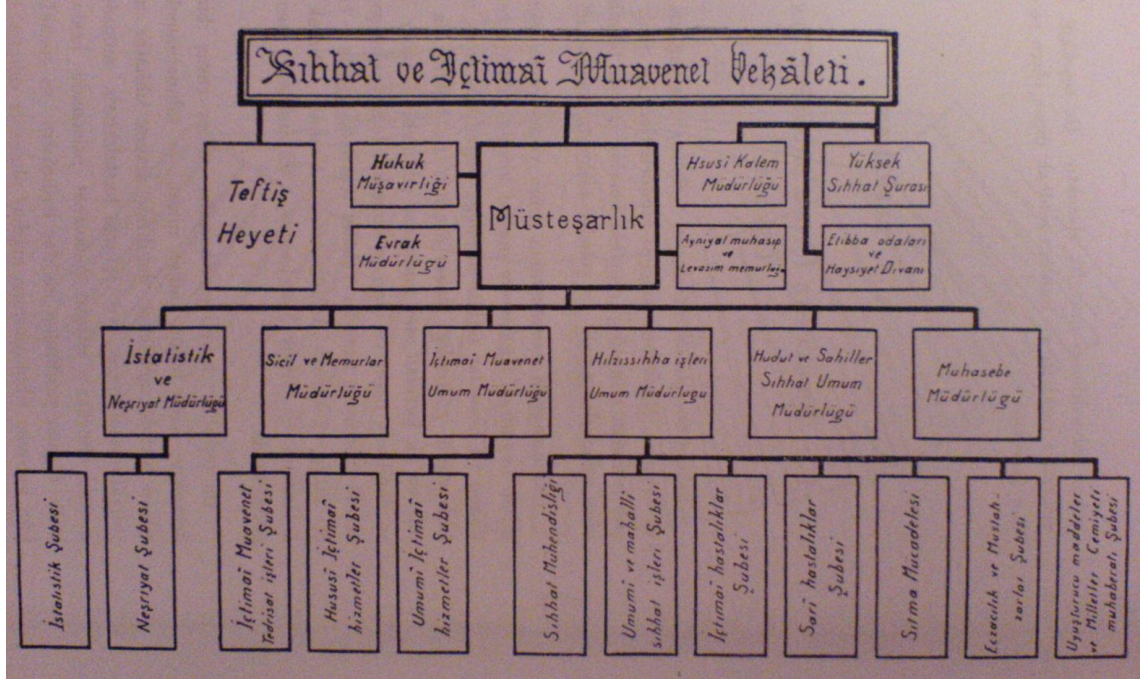 Sıhhat ve İçtimaî Muavenet Vekâleti.
Teftiş
Heyeti
Hukuk
Müşavirliği
Evrak
Müdürlüğü
Müsteşarlık
Hsusî Kalem
Müdürlüğü
Yüksek
Sıhhat Şurası
Aynıyat muhasıp
ve
Levazım memurluğu
Etibba odaları
ve
Haysiyet Divanı
İstatistik
ve
Neşriyat Müdürlüğü
Sicil ve Memurlar
Müdürlüğü
İçtimaî Muavenet
Umum Müdürlüğü
Hıfzıssıhha işleri
Umum Müdürlugü
Hudut ve Sahiller
Sıhhat Umum
Müdürlüğü
Muhasebe
Müdürlüğü
İstatistik Şubesi
Neşriyat Şubesi
İçtimaî Muavenet
Tedrisat işleri Şubesi
Hususî İçtimaî
hizmetler Şubesi
Umumî İçtimaî
hizmetler Şubesi
Sıhhat Muhendisliği
Umumî ve mahallî
sıhhat işleri Şubesi
İçtimaî hastalıklar
Şubesi
Sarî hastalıklar
Şubesi
Sıtma Mücadelesi
Eczacılık ve Mustah-
zarlar Şubesi
Uyuşturucu maddeler
ve Milletler Cemiyeti
muhaberatı Şubesi